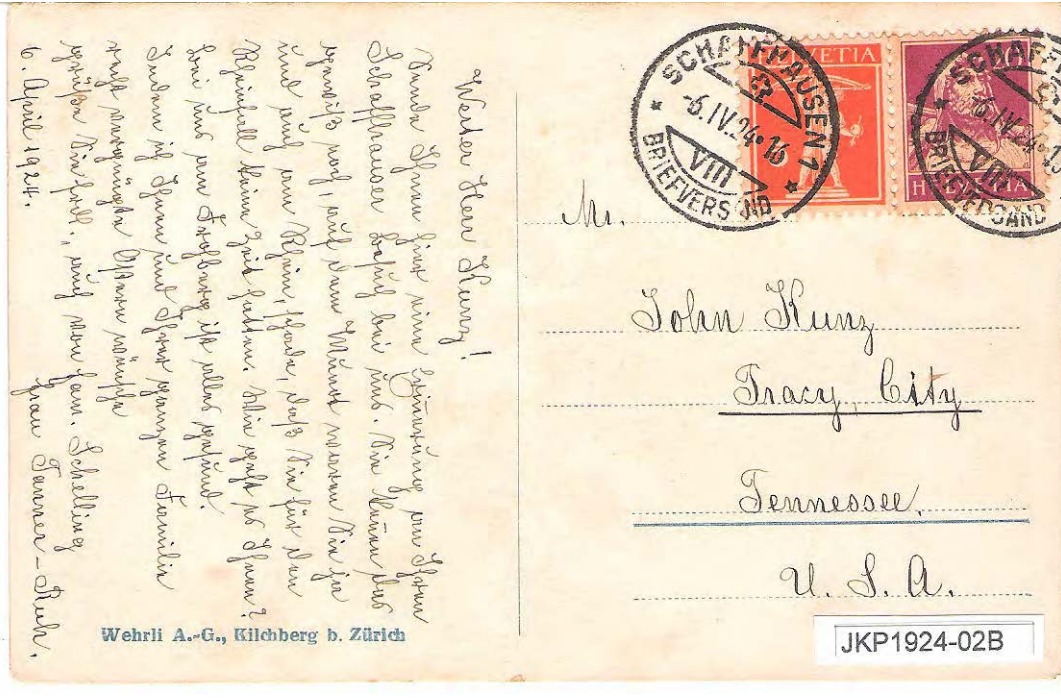 Werter Herr Kunz!
Sende Ihnen hier eine Erinnerung an Ihren
Schaffhauser Besuch bei uns. Sie kennen das
gewiß noch, auf dem Munot waren Sie ja
und auch am Rhein, schade, daß Sie für den
Rheinfall keine Zeit hatten. Wie geht es Ihnen?
Bei uns am Frohberg ist alles gesund.
Indem ich Ihnen und Ihrer ganzen Familie
recht vergnügte Ostern wünsche
grüße Sie frdl., auch von Fam. Schelling
6. April 1924. Frau Tanner-Ruh.
Wehrli A.-G., Kilchberg b. Zürich
HELVETIA
HELVETIA
SCHAFFHAUSEN 1
-6.IV.24-16
VIII
BRIEFVERSAND
SCHAFFH
-6.IV.24-1
VIII
BRIEFVERSAND
Mr.
John Kunz
Tracy City
Tennessee.
U. S. A.
JKP1924-02B